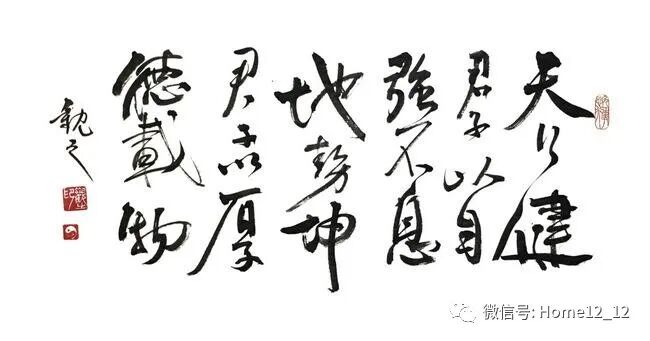 天行健
君子以自
強不息
地勢坤
君子以厚
德載物
微信号: Home12_12